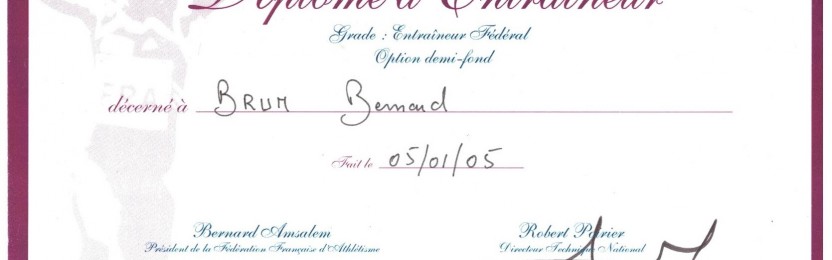 Diplôme d'Entraîneur
Grade : Entraîneur Fédéral
Option demi-fond
décerné à BRUM Bernard
Fait le 05/01/05
Bernard Amsalem Robert Poirier
Président de la Fédération Française d'Athlétisme Directeur Technique National